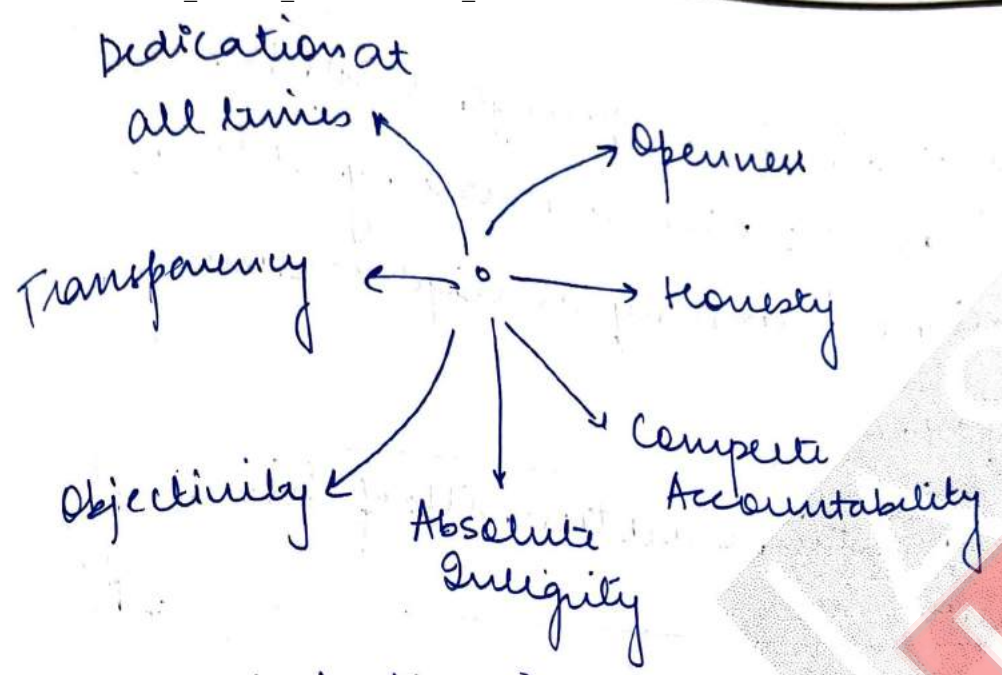 Dedication at
all times
Openness
Transparency
Honesty
Compete
Accountability
Objectivity
Absolute
Integrity